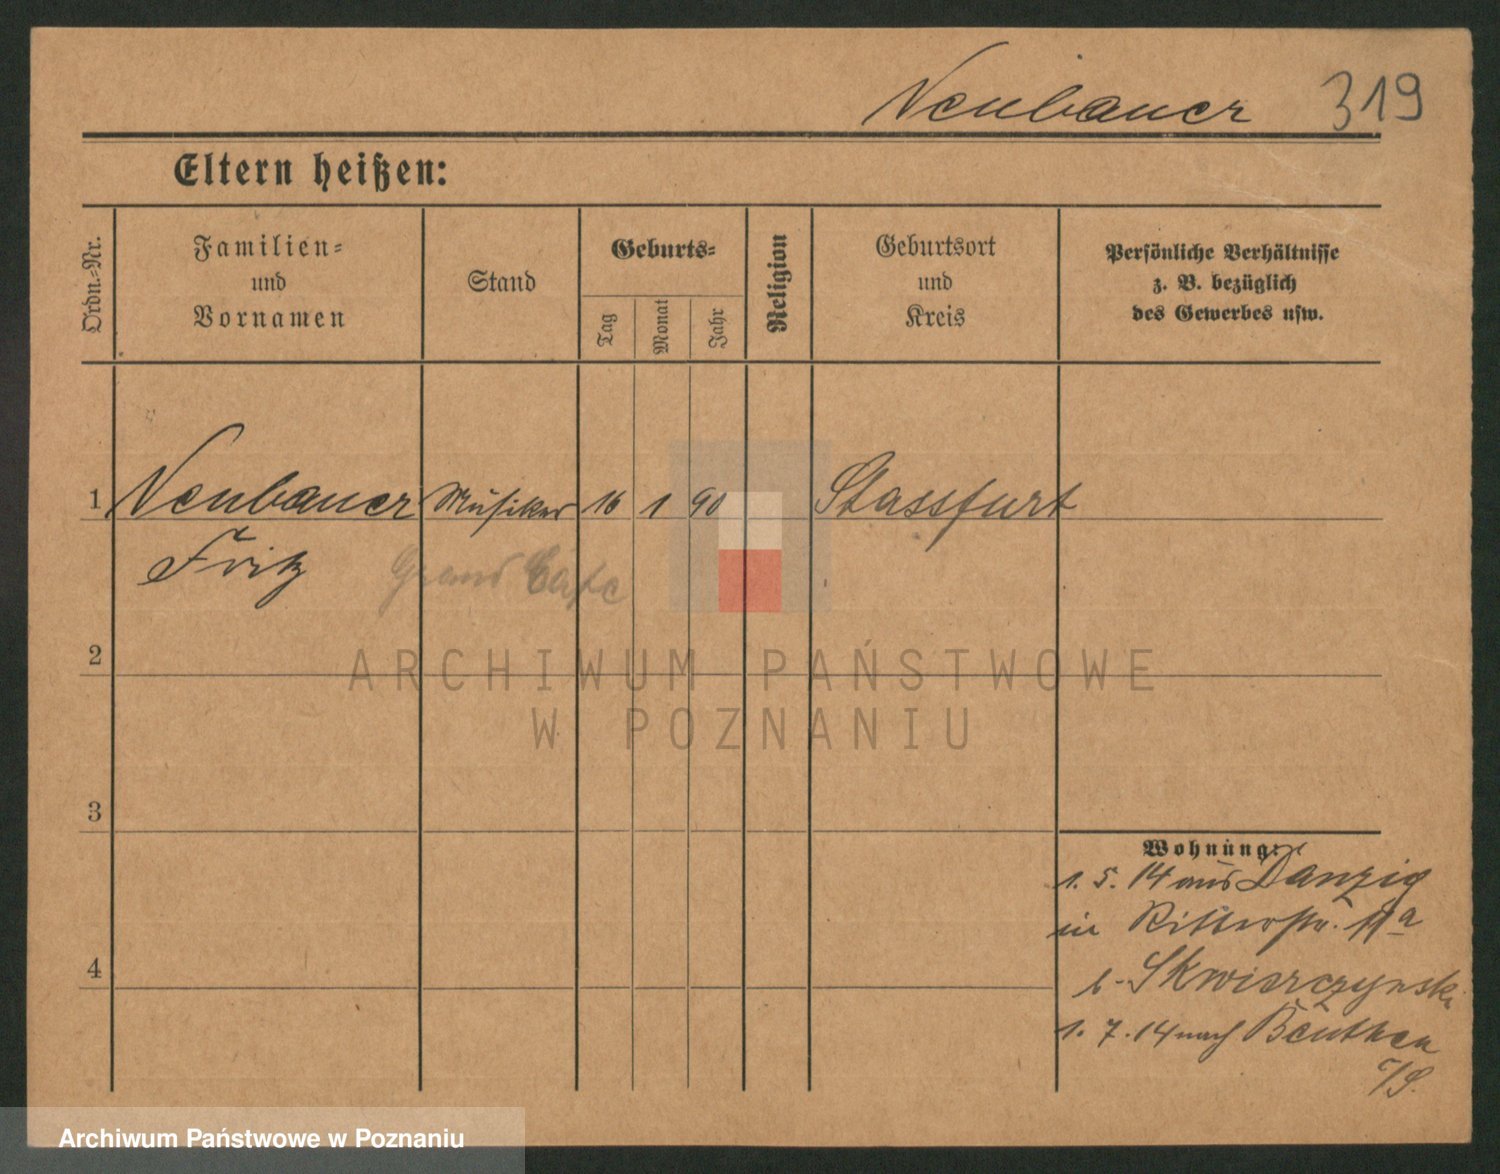 Neubauer 319
Eltern heißen:
Ordn.-Nr.
Familien-
und
Vornamen
Stand
Geburts-
Tag
Monat
Jahr
Religion
Geburtsort
und
Kreis
Persönliche Verhältnisse
z. B. bezüglich
des Gewerbes usw.
1 Neubauer Musiker 16 1 90 Stassfurt
Fritz Grand Café
2
3
4
Wohnung:
1. 5. 14 aus Danzig
in Ritterstr. 11a
b. Skwierczynski
1. 7. 14 nach Beuthen
O/S.
ARCHIWUM PAŃSTWOWE
W POZNANIU
Archiwum Państwowe w Poznaniu